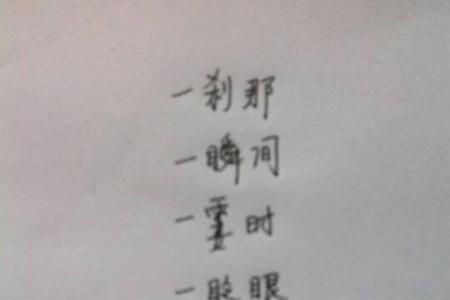 一刹那
一瞬间
一霎时
一眨眼